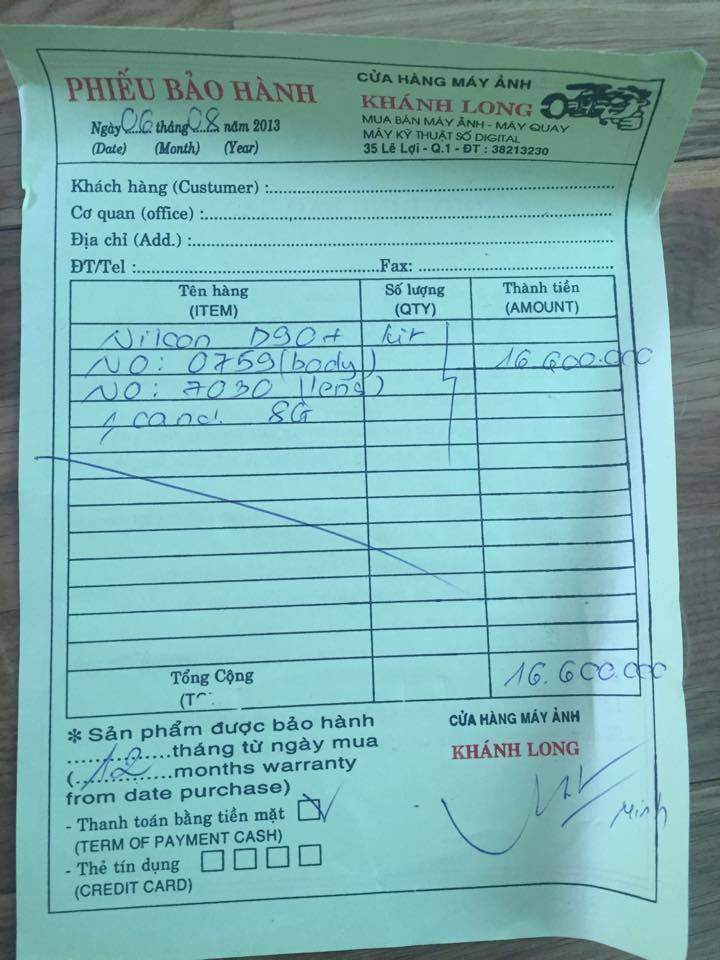 PHIẾU BẢO HÀNH
Ngày 06 tháng 08 năm 2013
(Date) (Month) (Year)
CỬA HÀNG MÁY ẢNH
KHÁNH LONG
MUA BÁN MÁY ẢNH - MÁY QUAY
MÁY KỸ THUẬT SỐ DIGITAL
35 Lê Lợi - Q.1 - ĐT : 38213230
Khách hàng (Custumer) :
Cơ quan (office) :
Địa chỉ (Add.) :
ĐT/Tel : Fax:
Tên hàng Số lượng Thành tiền
(ITEM) (QTY) (AMOUNT)
Nikon D90 + kit
NO: 0759 (body) 16.600.000
NO: 7030 (lens)
1 card 8G
Tổng Cộng 16.600.000
* Sản phẩm được bảo hành
tháng từ ngày mua
(12 months warranty
from date purchase)
- Thanh toán bằng tiền mặt
(TERM OF PAYMENT CASH)
- Thẻ tín dụng
(CREDIT CARD)
CỬA HÀNG MÁY ẢNH
KHÁNH LONG
Minh